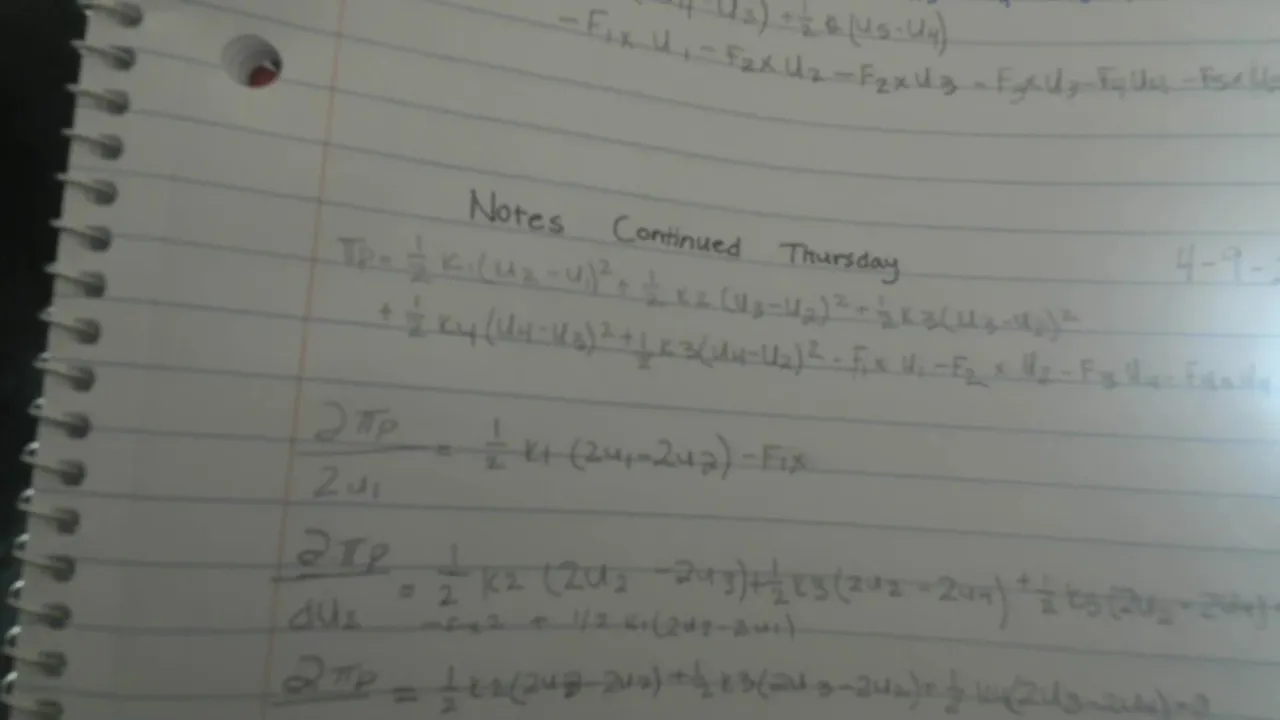 -U3) + 1/2 k(U5-U4)
-F1x U1 - F2x U2 - F2x U3 - F3x U3 - F4 U4 - F5x U5
Notes Continued Thursday 4-9-
πp = 1/2 k1(U2-U1)² + 1/2 k2(U3-U2)² + 1/2 k3(U3-U2)²
+ 1/2 k4(U4-U3)² + 1/2 k3(U4-U2)² - F1x U1 - F2x U2 - F3 U4 -
∂πp/2u1 = 1/2 k1 (2u1-2u2) - F1x
∂πp/du2 = 1/2 k2 (2u2 - 2u3) + 1/2 k3(2u2 - 2u4) + 1/2 k3(2u2 - 2u4) +
+ 1/2 k1(2u2-2u1)
∂πp = 1/2 k2(2u3-2u2) + 1/2 k3(2u3-2u2) + 1/2